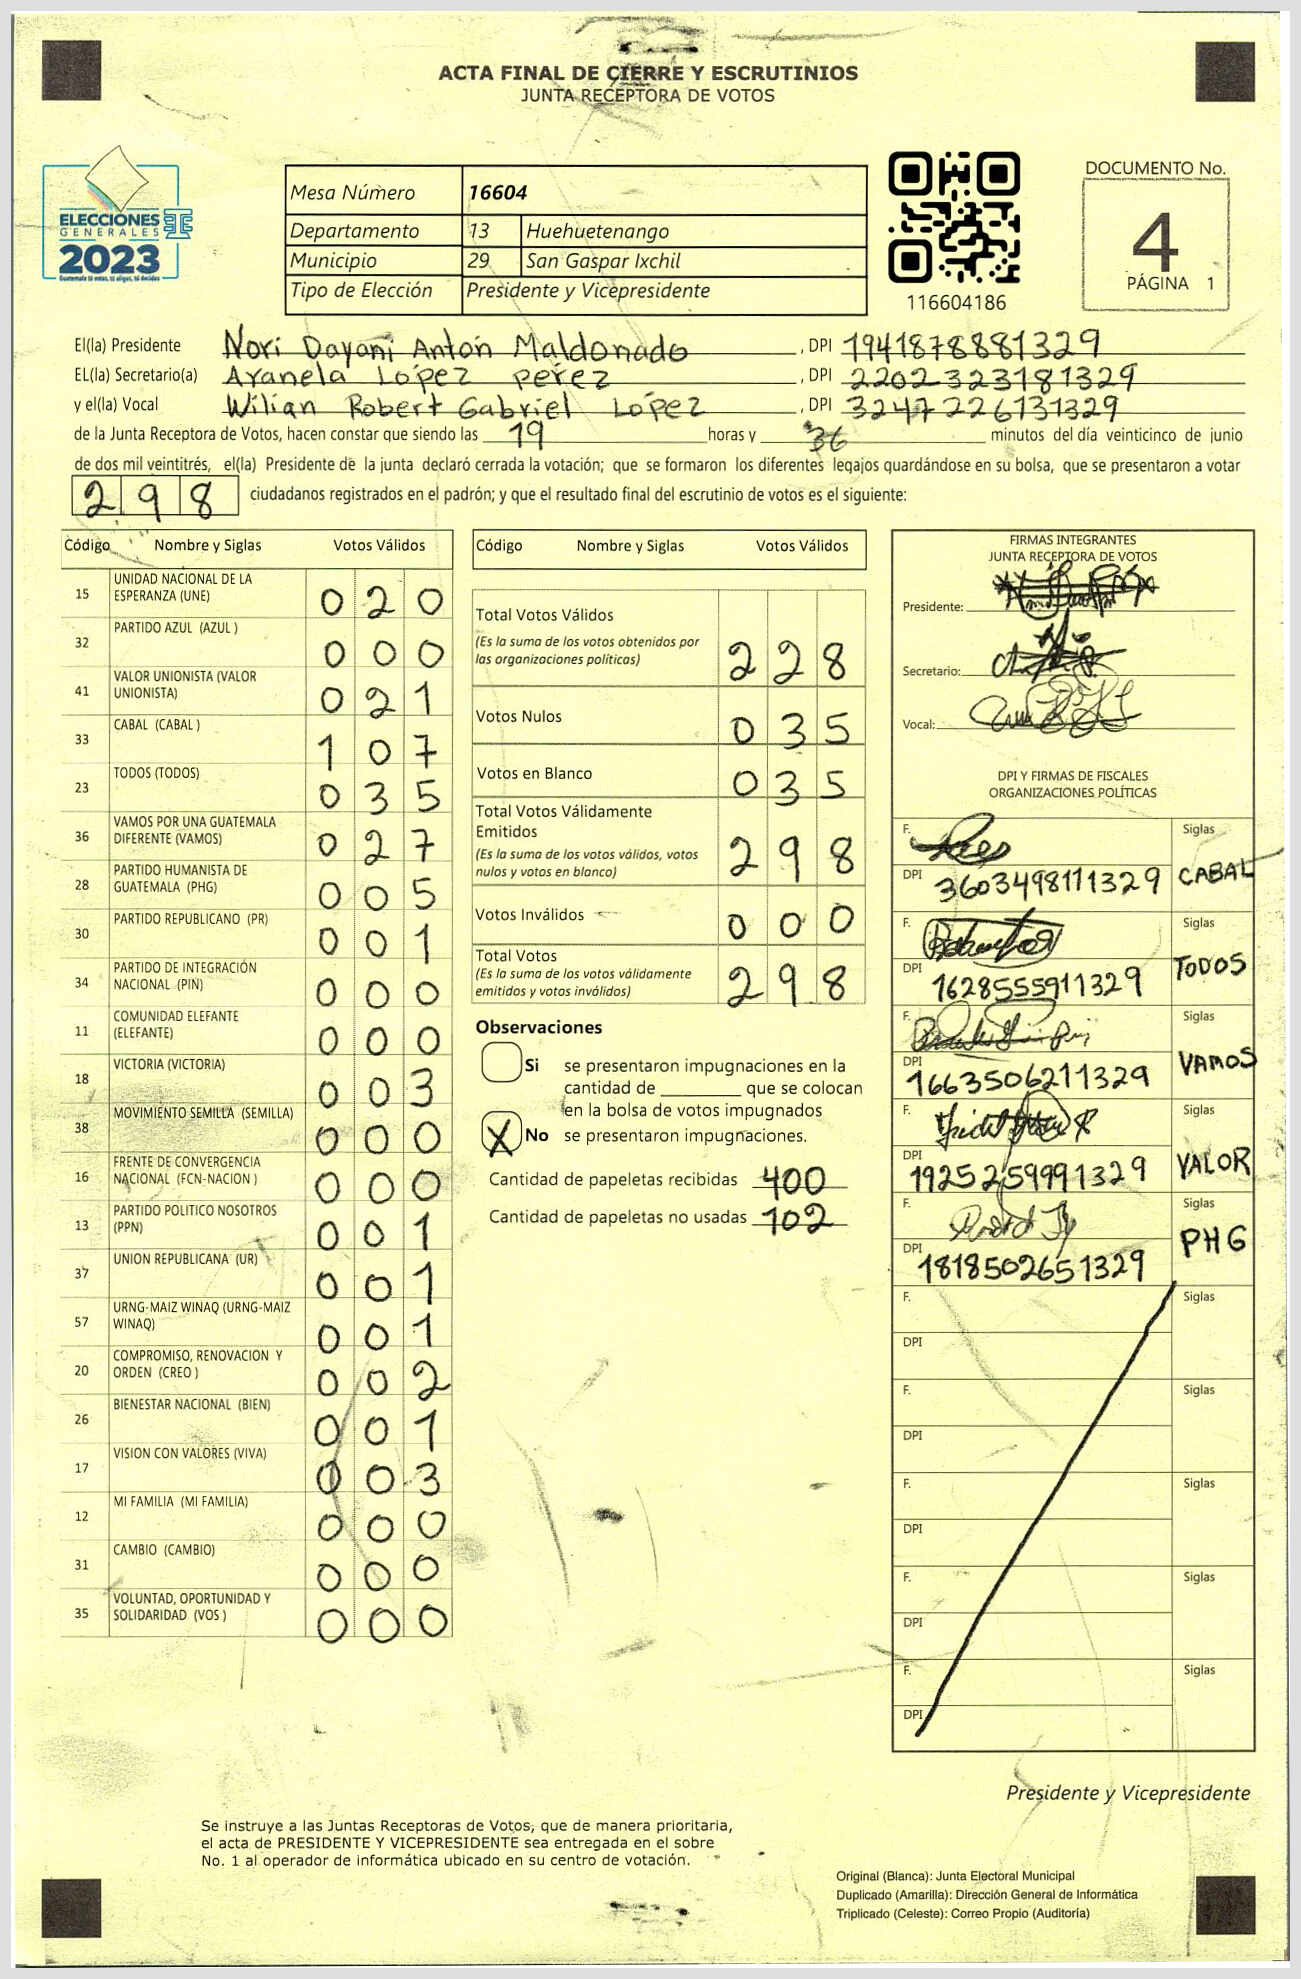 ACTA FINAL DE CIERRE Y ESCRUTINIOS
JUNTA RECEPTORA DE VOTOS
ELECCIONES
GENERALES
2023
Guatemala tú votas, tú eliges, tú decides
Mesa Número 16604
Departamento 13 Huehuetenango
Municipio 29 San Gaspar Ixchil
Tipo de Elección Presidente y Vicepresidente
116604186
DOCUMENTO No.
4
PÁGINA 1
El(la) Presidente Nori Dayani Anton Maldonado, DPI 1941878881329
EL(la) Secretario(a) Aranela López perez, DPI 2202323181329
y el(la) Vocal Wilian Robert Gabriel López, DPI 3247226131329
de la Junta Receptora de Votos, hacen constar que siendo las 19 horas y 36 minutos del día veinticinco de junio
de dos mil veintitrés, el(la) Presidente de la junta declaró cerrada la votación; que se formaron los diferentes legajos quardándose en su bolsa, que se presentaron a votar
298 ciudadanos registrados en el padrón; y que el resultado final del escrutinio de votos es el siguiente:
Código Nombre y Siglas Votos Válidos
15 UNIDAD NACIONAL DE LA ESPERANZA (UNE) 020
32 PARTIDO AZUL (AZUL ) 000
41 VALOR UNIONISTA (VALOR UNIONISTA) 021
33 CABAL (CABAL ) 107
23 TODOS (TODOS) 035
36 VAMOS POR UNA GUATEMALA DIFERENTE (VAMOS) 027
28 PARTIDO HUMANISTA DE GUATEMALA (PHG) 005
30 PARTIDO REPUBLICANO (PR) 001
34 PARTIDO DE INTEGRACIÓN NACIONAL (PIN) 000
11 COMUNIDAD ELEFANTE (ELEFANTE) 000
18 VICTORIA (VICTORIA) 003
38 MOVIMIENTO SEMILLA (SEMILLA) 000
16 FRENTE DE CONVERGENCIA NACIONAL (FCN-NACION ) 000
13 PARTIDO POLITICO NOSOTROS (PPN) 001
37 UNION REPUBLICANA (UR) 001
57 URNG-MAIZ WINAQ (URNG-MAIZ WINAQ) 001
20 COMPROMISO, RENOVACION Y ORDEN (CREO ) 002
26 BIENESTAR NACIONAL (BIEN) 001
17 VISION CON VALORES (VIVA) 003
12 MI FAMILIA (MI FAMILIA) 000
31 CAMBIO (CAMBIO) 000
35 VOLUNTAD, OPORTUNIDAD Y SOLIDARIDAD (VOS ) 000
Código Nombre y Siglas Votos Válidos
Total Votos Válidos 228
(Es la suma de los votos obtenidos por
las organizaciones políticas)
Votos Nulos 035
Votos en Blanco 035
Total Votos Válidamente
Emitidos 298
(Es la suma de los votos válidos, votos
nulos y votos en blanco)
Votos Inválidos 000
Total Votos 298
(Es la suma de los votos válidamente
emitidos y votos inválidos)
Observaciones
Si se presentaron impugnaciones en la
cantidad de ________ que se colocan
en la bolsa de votos impugnados
X No se presentaron impugnaciones.
Cantidad de papeletas recibidas 400
Cantidad de papeletas no usadas 102
FIRMAS INTEGRANTES
JUNTA RECEPTORA DE VOTOS
Presidente:
Secretario:
Vocal:
DPI Y FIRMAS DE FISCALES
ORGANIZACIONES POLÍTICAS
F. Siglas
DPI 3603498111329 CABAL
F. Siglas
DPI 1628555911329 TODOS
F. Siglas
DPI 1663506211329 VAMOS
F. Siglas
DPI 1925259991329 VALOR
F. Siglas
DPI 1818502651329 PHG
F. Siglas
DPI
F. Siglas
DPI
F. Siglas
DPI
F. Siglas
DPI
F. Siglas
DPI
Presidente y Vicepresidente
Se instruye a las Juntas Receptoras de Votos, que de manera prioritaria,
el acta de PRESIDENTE Y VICEPRESIDENTE sea entregada en el sobre
No. 1 al operador de informática ubicado en su centro de votación.
Original (Blanca): Junta Electoral Municipal
Duplicado (Amarilla): Dirección General de Informática
Triplicado (Celeste): Correo Propio (Auditoría)